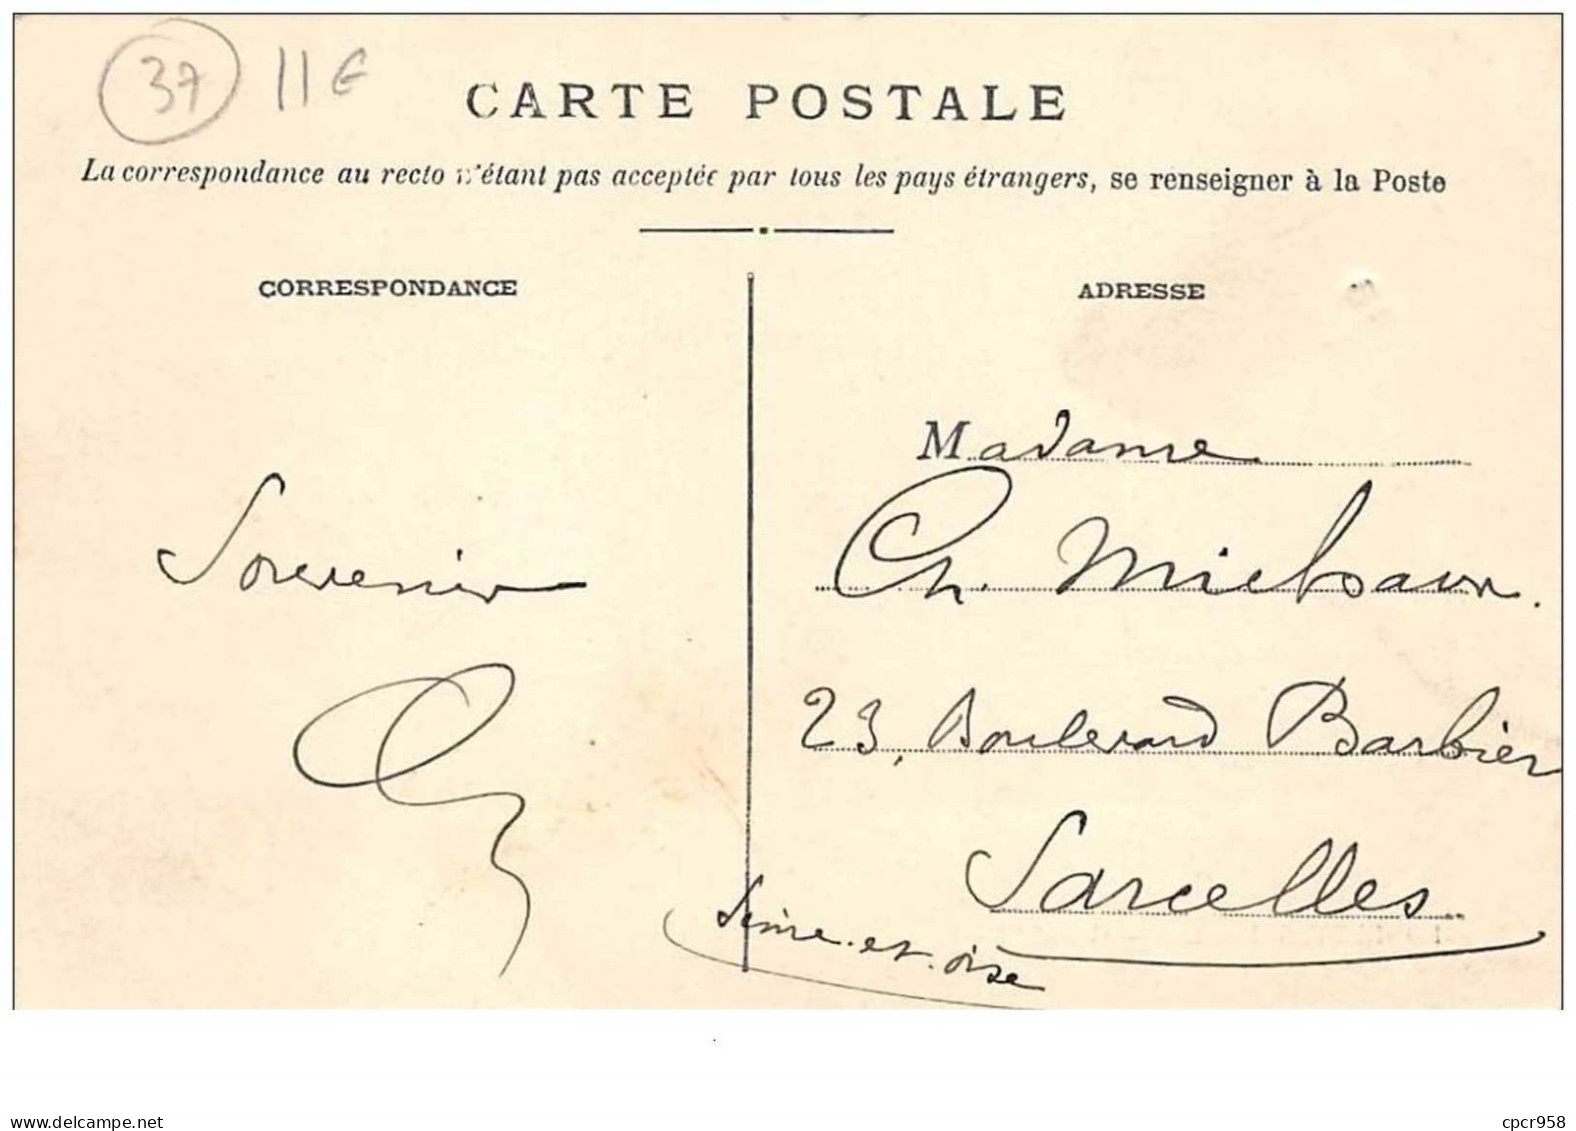 37 11 €
CARTE POSTALE
La correspondance au recto n'étant pas acceptée par tous les pays étrangers, se renseigner à la Poste
CORRESPONDANCE
ADRESSE
Souvenir
Madame
Ch. Michaux.
23, Boulevard Barbier
Sarcelles
Seine-et-Oise
delcampe.net
cpcr958